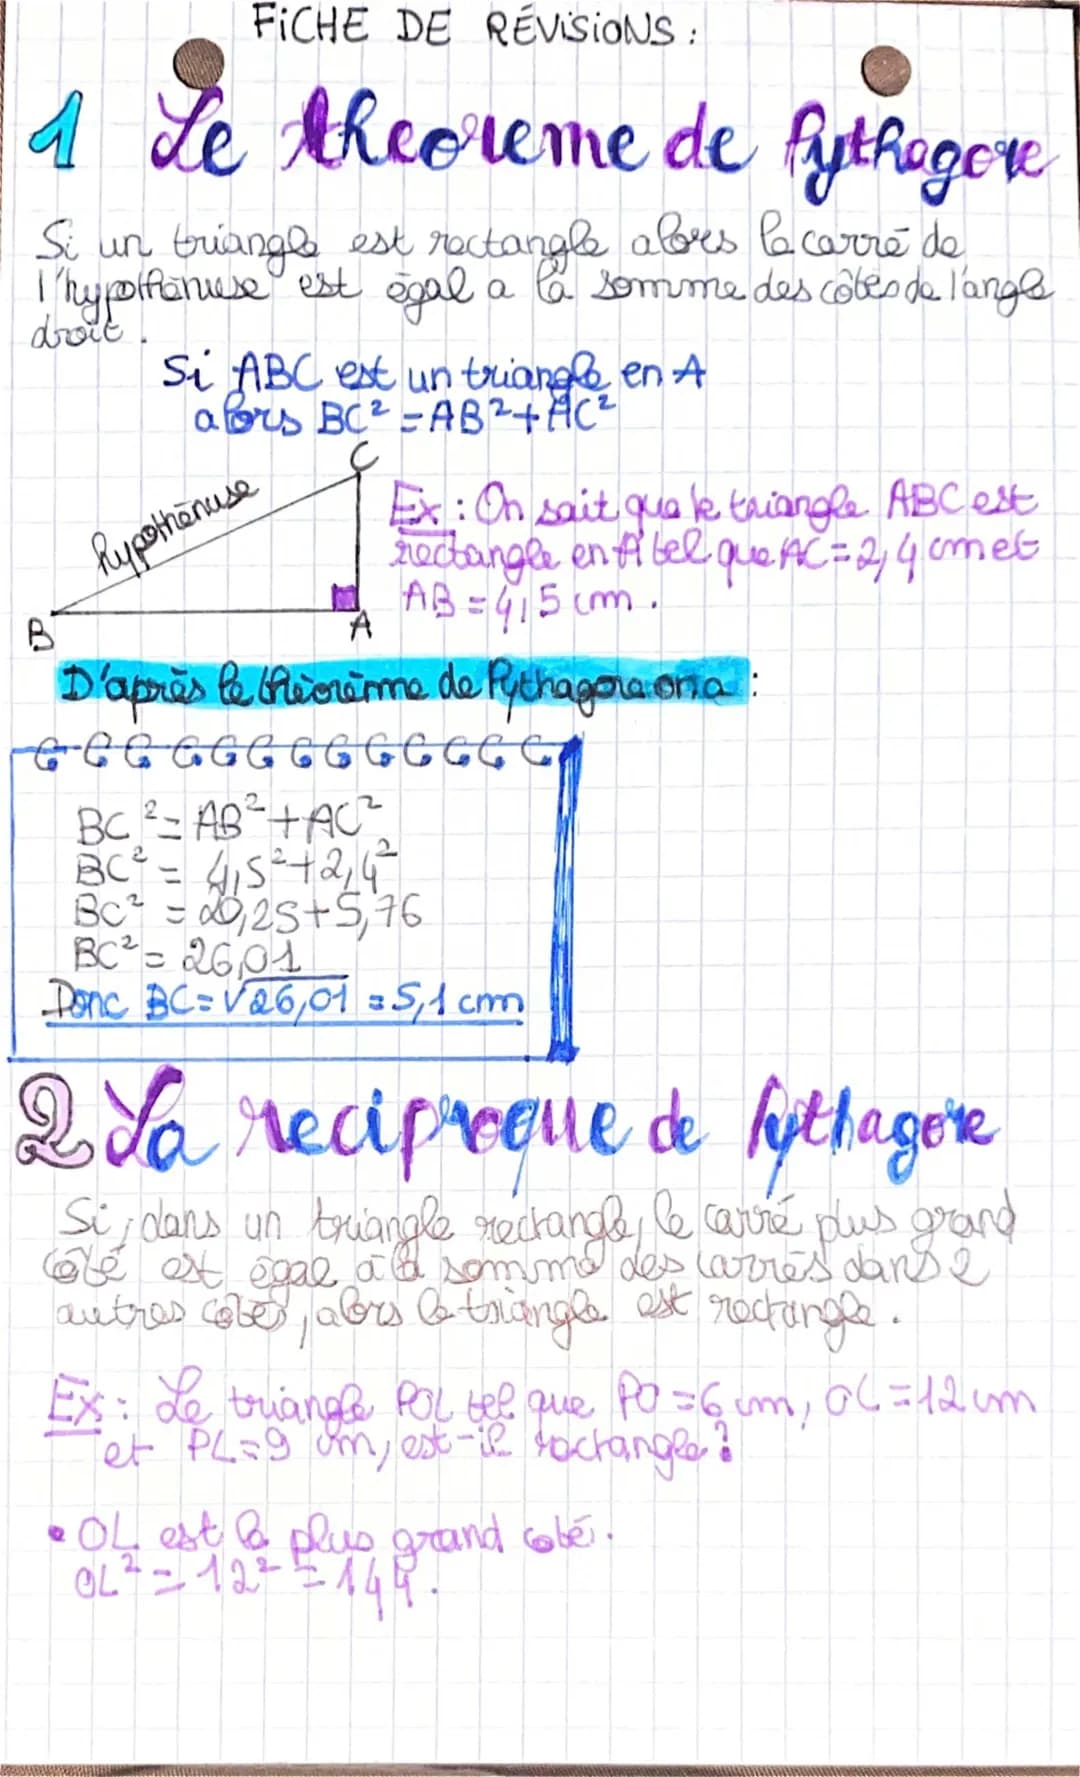 FICHE DE RÉVISIONS :
1 Le theoreme de Pythagore
Si un triangle est rectangle alors le carré de
l'hypothénuse est égal a la somme des côtés de l'angle
droit.
Si ABC est un triangle en A
alors BC² = AB² + AC²
C
hypothénuse
B
A
Ex : On sait que le triangle ABC est
rectangle en A tel que AC = 2,4 cm et
AB = 4,5 cm.
D'après le théorème de Pythagore on a :
BC² = AB² + AC²
BC² = 4,5² + 2,4²
BC² = 20,25 + 5,76
BC² = 26,01
Donc BC = √26,01 = 5,1 cm
2 La reciproque de Pythagore
Si, dans un triangle rectangle, le carré plus grand
côté est égal à la somme des carrés dans 2
autres côtés, alors le triangle est rectangle.
Ex : Le triangle POL tel que PO = 6 cm, OL = 12 cm
et PL = 9 cm, est-il rectangle ?
• OL est le plus grand coté.
OL² = 12² = 144.